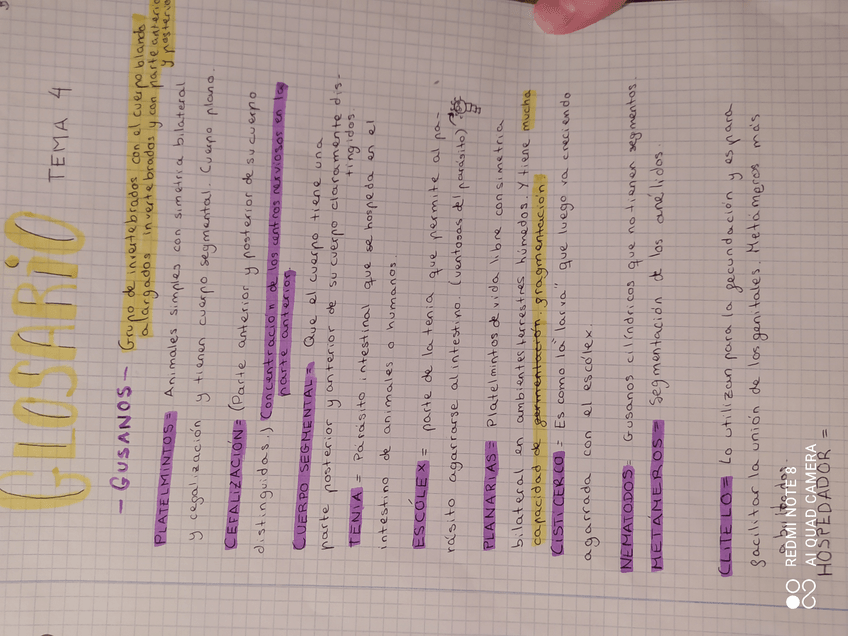 GLOSARIO TEMA 4
- GUSANOS - Grupo de invertebrados con el cuerpo blando
alargados invertebrados y con parte anterior
y posterior
PLATELMINTOS = Animales simples con simetria bilateral
y cefalización y tienen cuerpo segmental. Cuerpo plano.
CEFALIZACIÓN = (Parte anterior y posterior de su cuerpo
distinguidas.) Concentración de los centros nerviosos en la
parte anterior
CUERPO SEGMENTAL = Que el cuerpo tiene una
parte posterior y anterior de su cuerpo claramente dis-
tingidos.
TENIA = Parásito intestinal que se hospeda en el
intestino de animales o humanos
ESCÓLEX = parte de la tenia que permite al pa-
rásito agarrarse al intestino. (ventosas del parásito)
PLANARIAS = Platelmintos de vida libre con simetria
bilateral en ambientes terrestres húmedos. Y tiene mucha
capacidad de fragmentación
CISTICERCO = Es como la "larva" que luego va creciendo
agarrada con el escólex.
NEMATODOS = Gusanos cilíndricos que no tienen segmentos.
METÁMEROS = Segmentación de los anélidos.
CLITELO = Lo utilizan para la fecundación y es para
facilitar la unión de los genitales. Metámeros más
abultados.
HOSPEDADOR =
REDMI NOTE 8
AI QUAD CAMERA